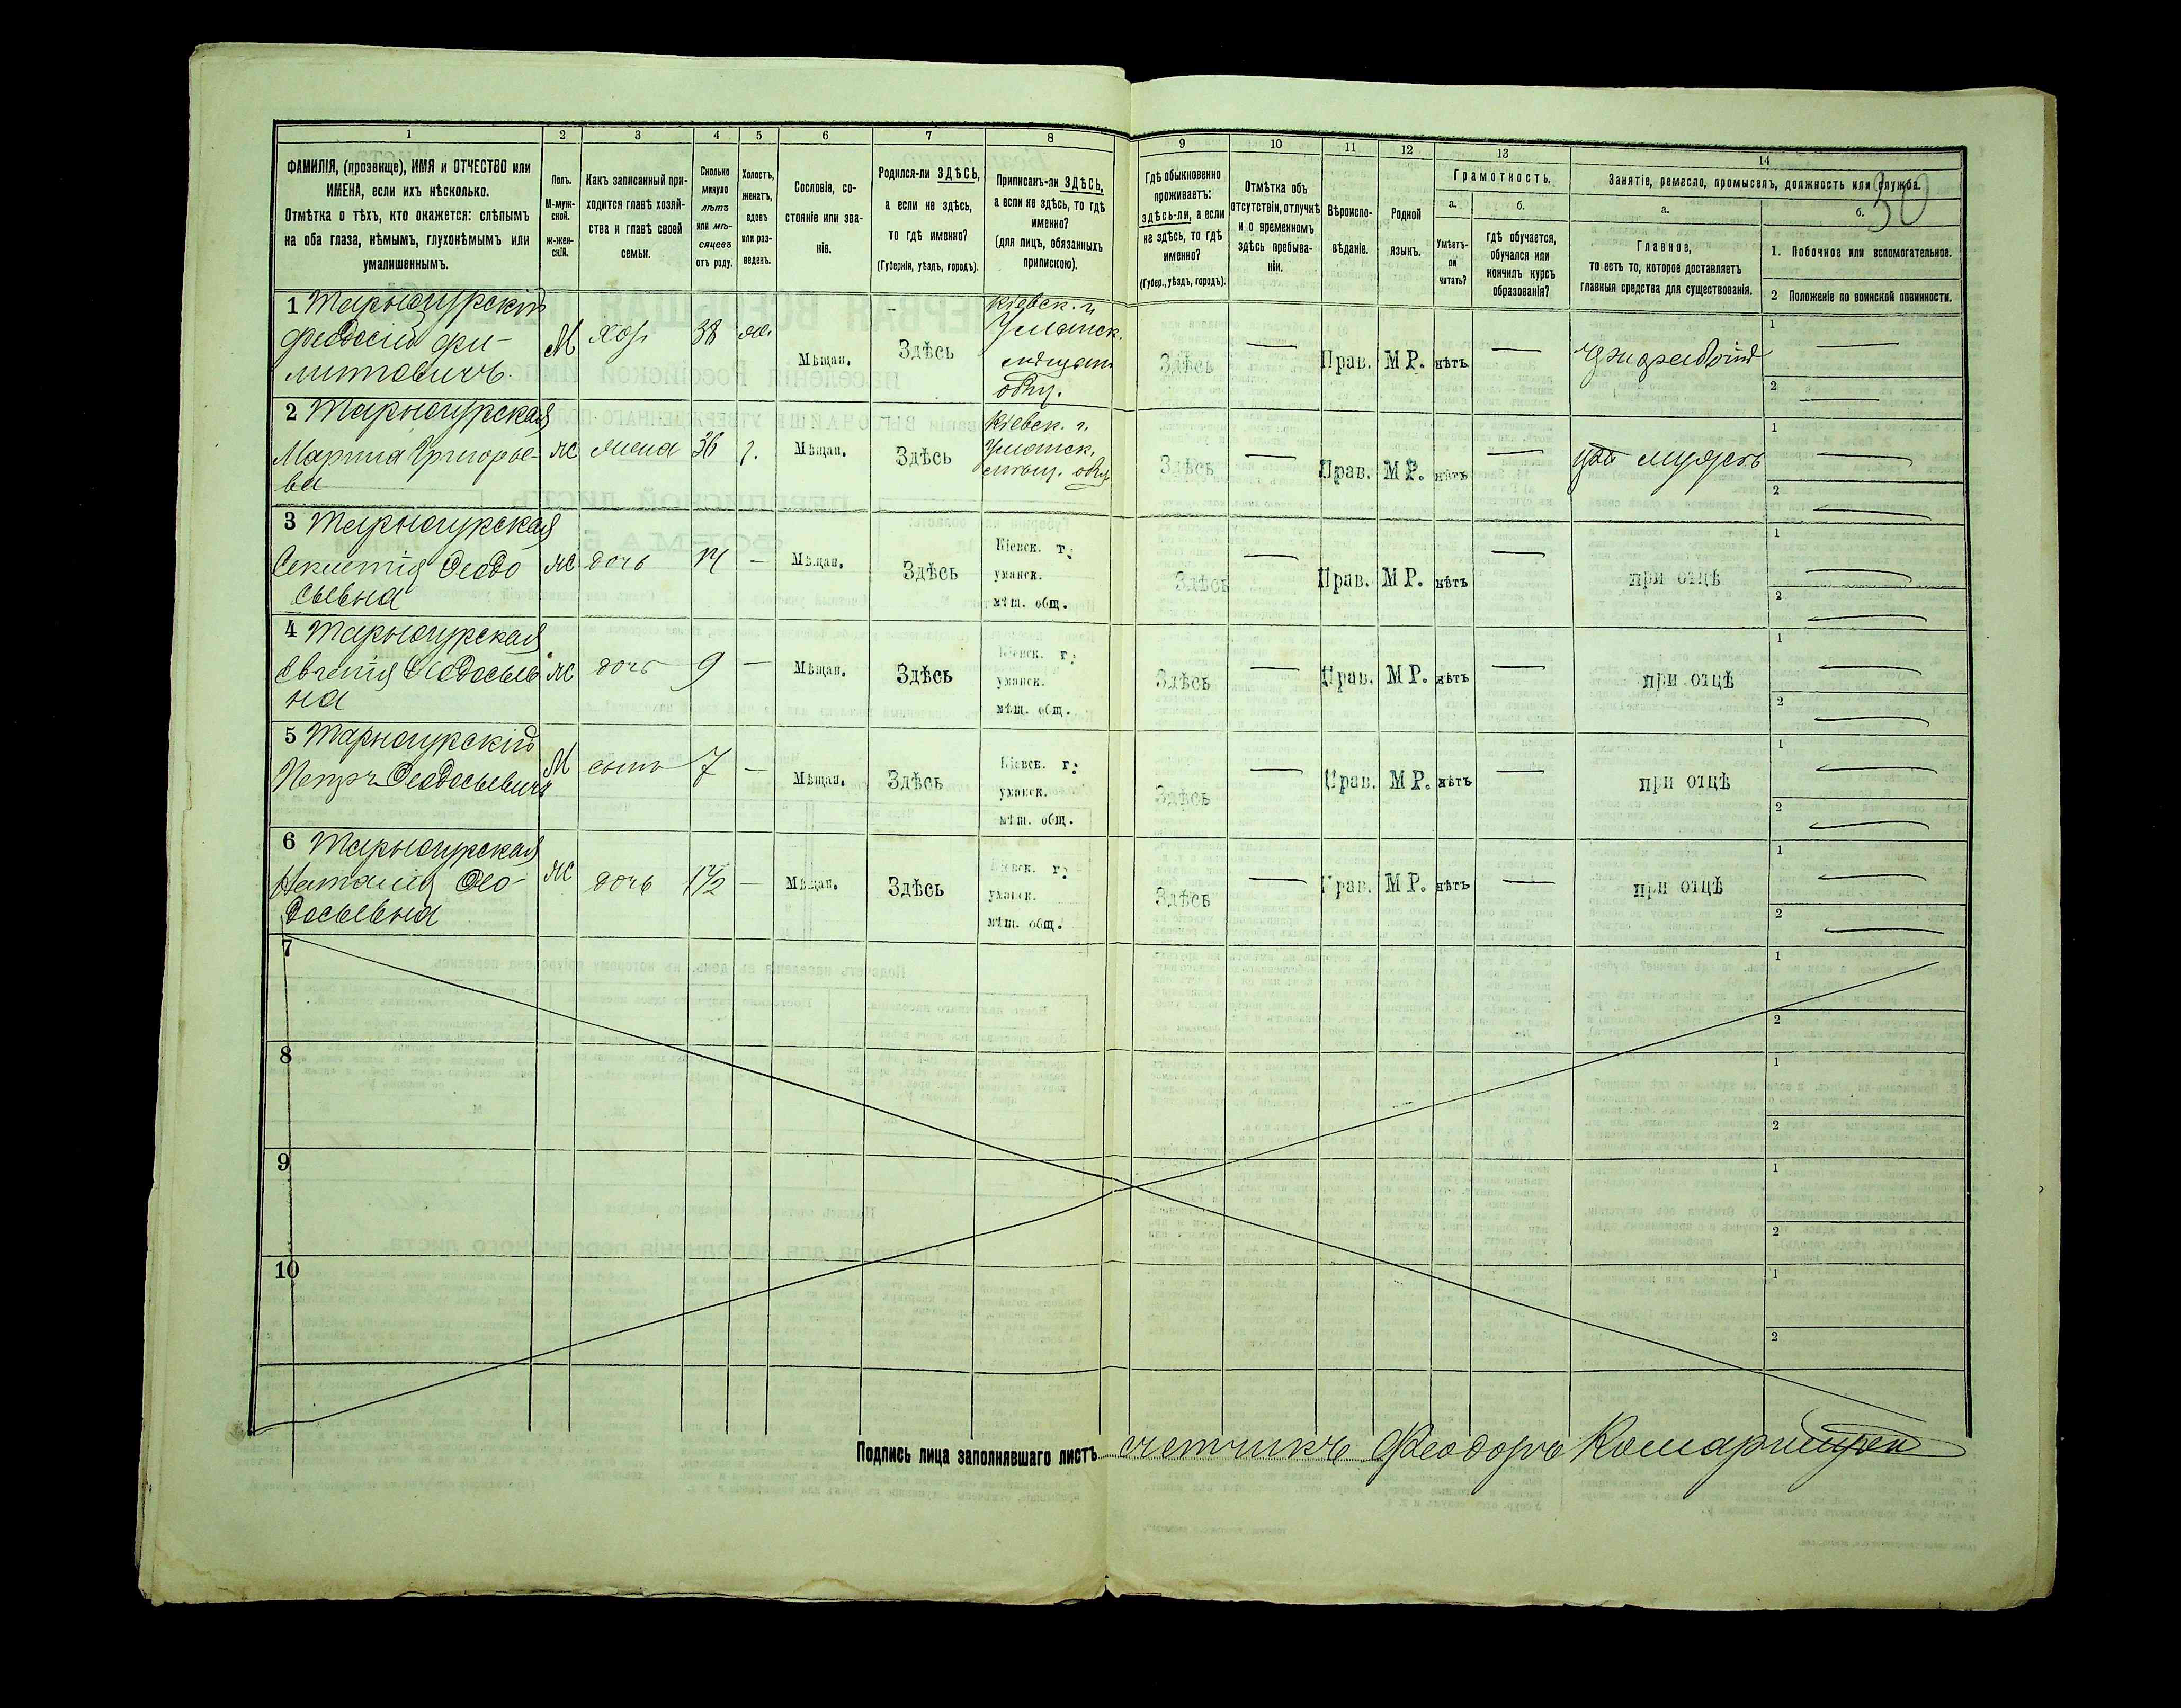 1 2 3 4 5 6 7 8 9 10 11 12 13 14
ФАМИЛІЯ, (прозвище), ИМЯ и ОТЧЕСТВО или
ИМЕНА, если ихъ нѣсколько.
Отмѣтка о тѣхъ, кто окажется: слѣпымъ
на оба глаза, нѣмымъ, глухонѣмымъ или
умалишеннымъ.
Полъ.
М-муж-
ской.
ж-жен-
скій.
Какъ записанный при-
ходится главѣ хозяй-
ства и главѣ своей
семьи.
Сколько
минуло
лѣтъ
или мѣ-
сяцевъ
отъ роду.
Холостъ,
женатъ,
вдовъ
или раз-
веденъ.
Сословіе, со-
стояніе или зва-
ніе.
Родился-ли ЗДѢСЬ,
а если не здѣсь,
то гдѣ именно?
(Губернія, уѣздъ, городъ).
Приписанъ-ли ЗДѢСЬ,
а если не здѣсь, то гдѣ
именно?
(для лицъ, обязанныхъ
припискою).
Гдѣ обыкновенно
проживаетъ:
здѣсь-ли, а если
не здѣсь, то гдѣ
именно?
(Губер., уѣздъ, городъ).
Отмѣтка объ
отсутствіи, отлучкѣ
и о временномъ
здѣсь пребыва-
ніи.
Вѣроиспо-
вѣданіе.
Родной
языкъ.
Грамотность.
а.
Умѣетъ-
ли
читать?
б.
гдѣ обучается,
обучался или
кончилъ курсъ
образованія?
Занятіе, ремесло, промыселъ, должность или служба.
50
а.
Главное,
то есть то, которое доставляетъ
главныя средства для существованія.
б.
1. Побочное или вспомогательное.
2 Положеніе по воинской повинности.
1
Феодосій Фи-
М хоз 38 Мѣщан. Здѣсь
Кіевск. г.
Уманск.
общ.
Здѣсь — Прав. М Р. нѣтъ — 1 —
2 —
2
Марина Григорье-
ва
ж жена 36 Мѣщан. Здѣсь
Кіевск. г.
Уманск.
мѣщ. общ.
Здѣсь — Прав. М Р. нѣтъ — при мужѣ 1 —
2 —
3
Феодо
сьевна
ж дочь 14 — Мѣщан. Здѣсь
Кіевск. г.
уманск.
мѣщ. общ.
Здѣсь — Прав. М Р. нѣтъ — при отцѣ 1 —
2 —
4
Феодосьев
на
ж дочь 9 — Мѣщан. Здѣсь
Кіевск. г.
уманск.
мѣщ. общ.
Здѣсь — Прав. М Р. нѣтъ — при отцѣ 1 —
2 —
5
Петръ Феодосьевичъ
М сынъ 7 — Мѣщан. Здѣсь
Кіевск. г.
уманск.
мѣщ. общ.
Здѣсь — Прав. М Р. нѣтъ — при отцѣ 1 —
2 —
6
Наталія Фео-
досьевна
ж дочь 1 1/2 — Мѣщан. Здѣсь
Кіевск. г.
уманск.
мѣщ. общ.
Здѣсь — Прав. М Р. нѣтъ — при отцѣ 1 —
2 —
7 1
2
8 1
2
9 1
2
10 1
2
Подпись лица заполнявшаго листъ счетчикъ Феодоръ